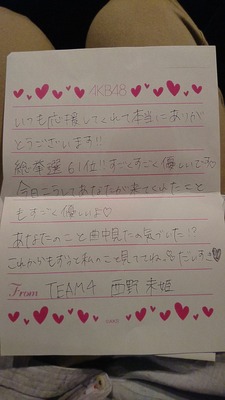 AKB48
いつも応援してくれて本当にありが
とうございます!!
総挙選61位!!すごくすごく優しいです♡
今日こうしてあなたが来てくれたこと
もすごく優しいよ♡
あなたのこと曲中見たの気づいた!?
これからもずっと私のこと見ててね。だいすき♡
From TEAM4 西野 未姫